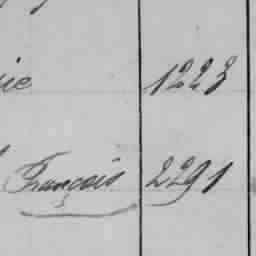 ie 1223
François 2291